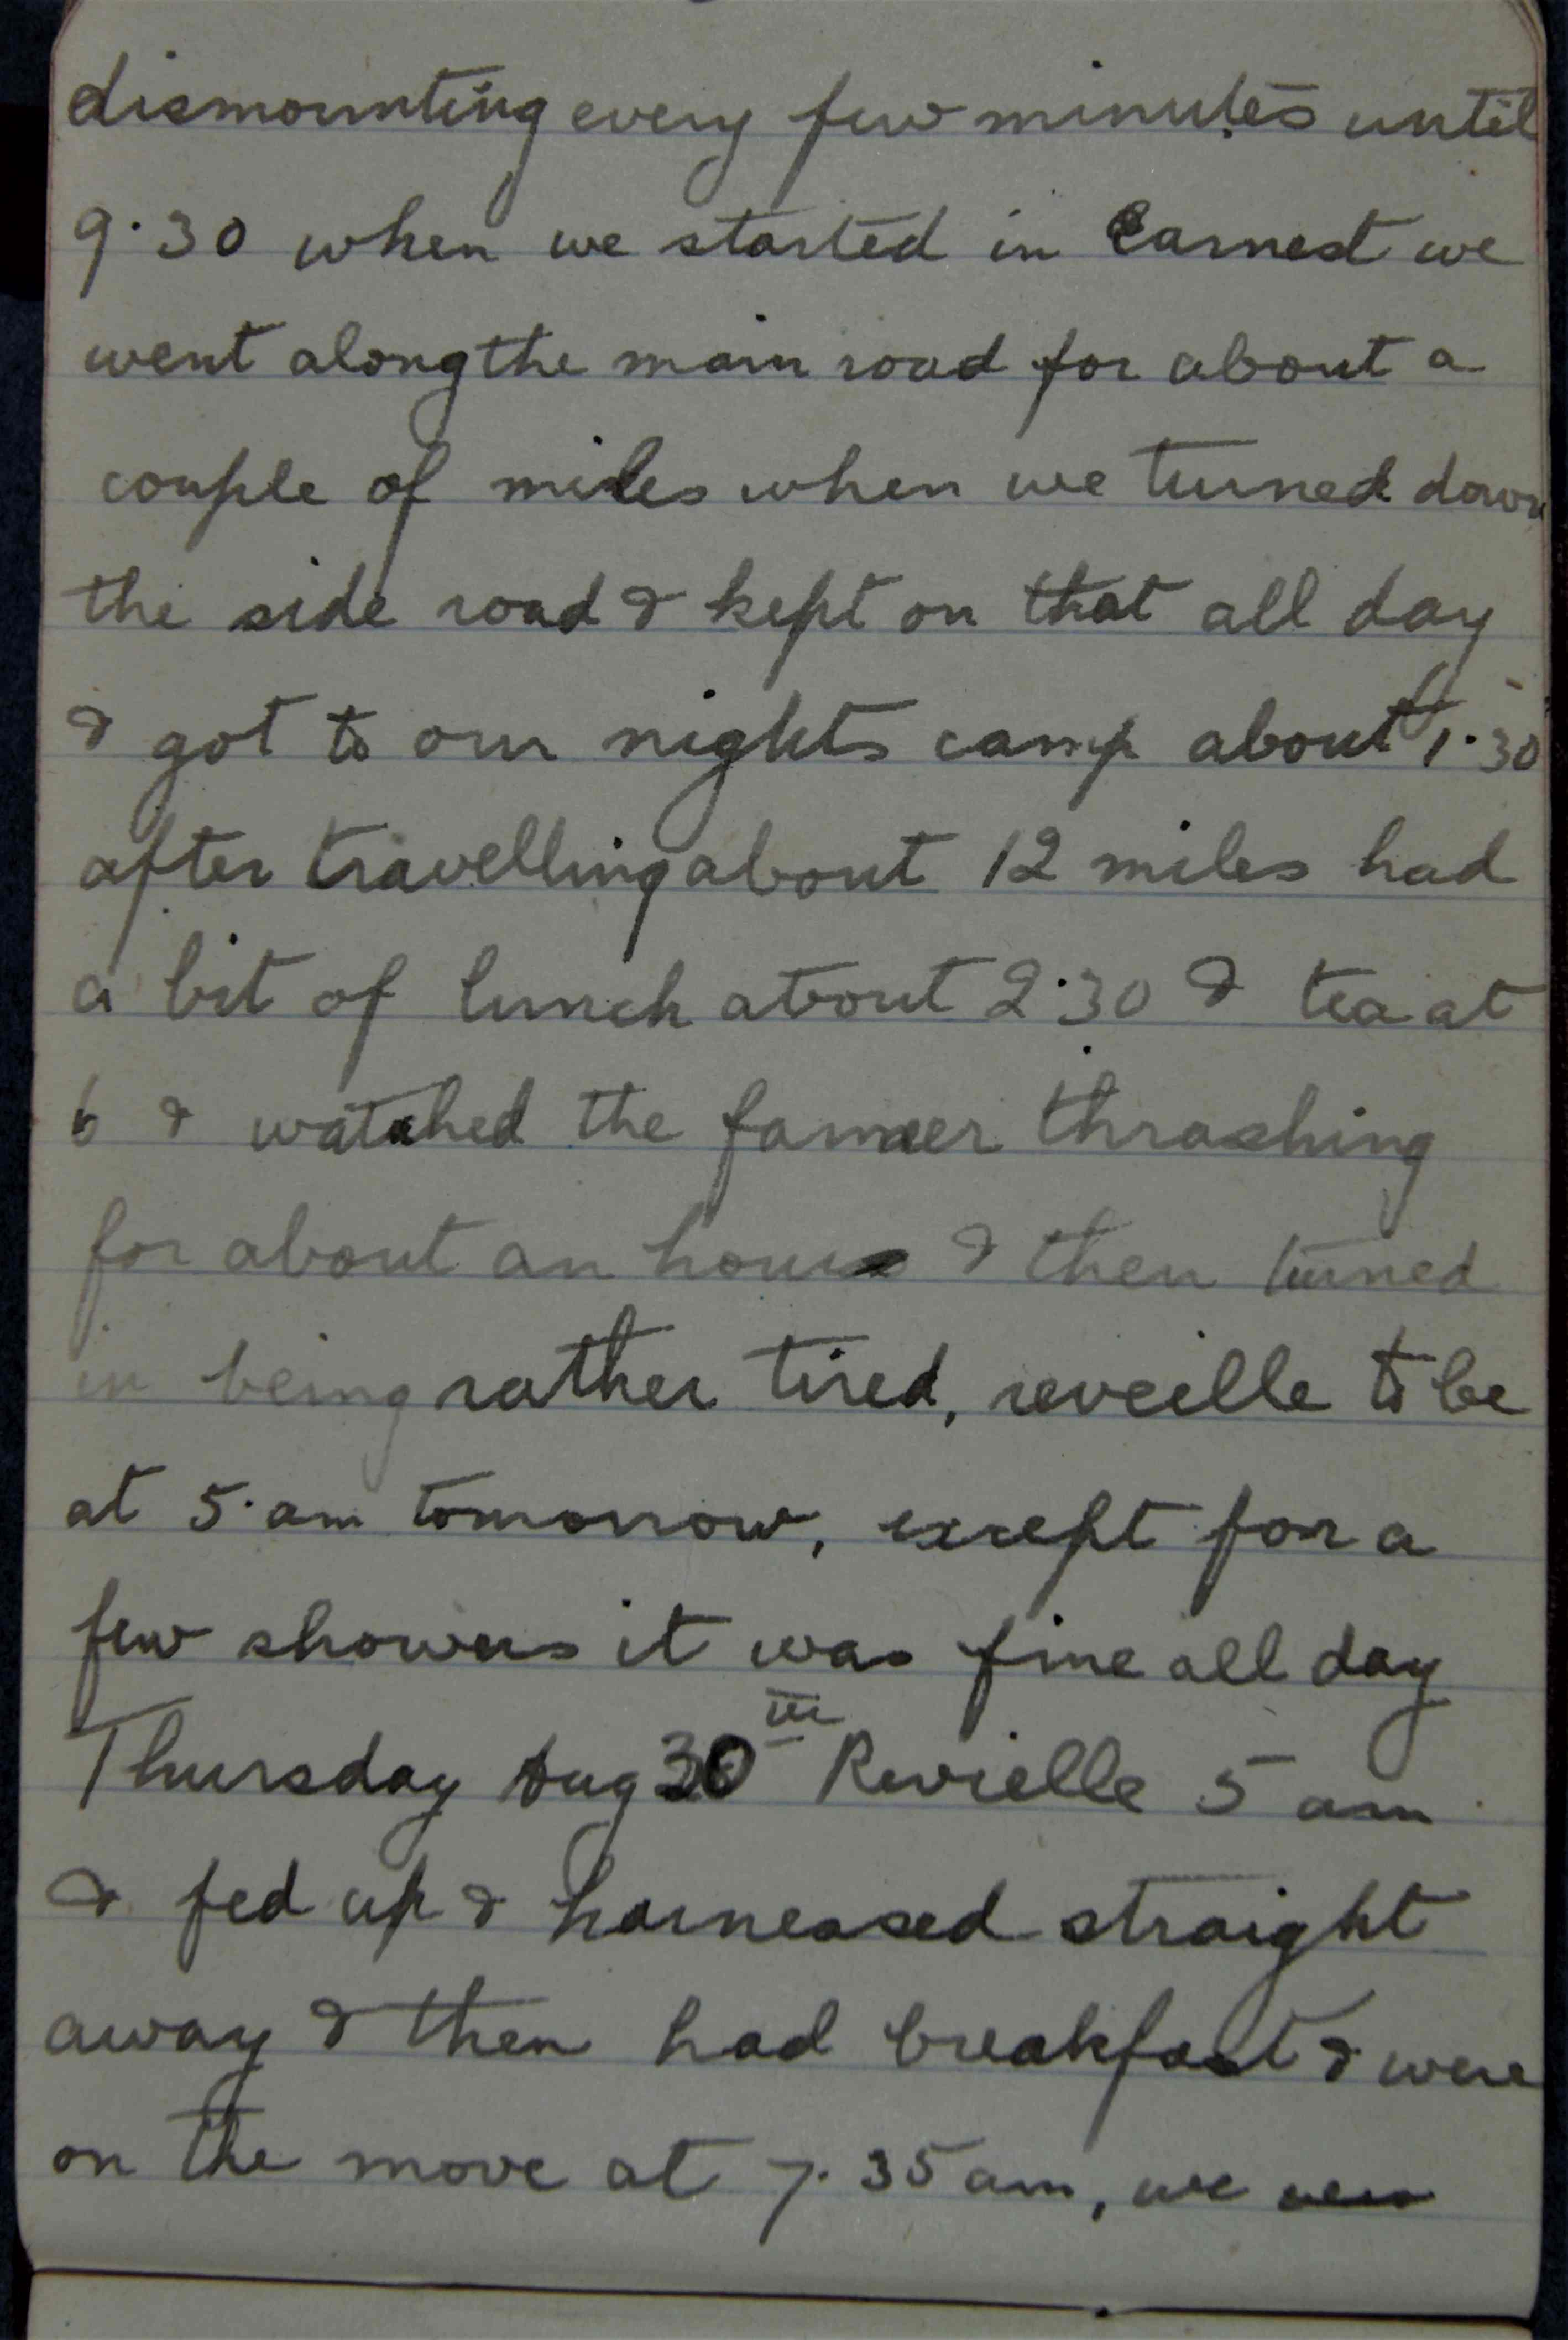 dismounting every few minutes until
9.30 when we started in earnest we
went along the main road for about a
couple of miles when we turned down
the side road & kept on that all day
& got to our nights camp about 1.30
after travelling about 12 miles had
a bit of lunch about 2.30 & tea at
6 & watched the farmer thrashing
for about an hour & then turned
in being rather tired, reveille to be
at 5.am tomorrow, except for a
few showers it was fine all day
Thursday Aug 30th Revielle 5 am
& fed up & harnessed straight
away & then had breakfast & were
on the move at 7.35 am, we